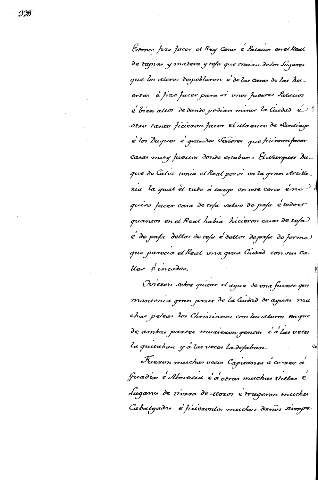 Estonce fizo facer el Rey Casas é Palacio en el Real
de tapias, y madera y teja que traian de los Lugares
que los Moros despoblaron é de las casas de las Hu-
ertas é fizo facer para sí unos fuertes Palacios
é bien altos de donde podian mirar la Ciudad é
otro tanto ficieron facer el Maestre de Santiago
é los Duques é grandes Señores que ficieron facer
casas muy fuertes donde estaban: El Marques Du-
que de Cadiz tenia el Real por sí con la gran Artille-
ria la qual él tubo á cargo en este cerco é no
quiso facer casa de teja salvo de paja é todos
quantos en el Real habia hicieron casas de teja
é de paja dellas de teja é dellas de paja de forma
que parecia el Real una gran Ciudad con sus ca-
lles é
Ovieron sobre quitar el agua de una fuente que
mantenia gran parte de la Ciudad de aguas mu-
chas peleas los Christianos con los Moros en que
de ambas partes murieron gentes é á las veces
la quitaban y á las veces la dejaban.
Fueron muchas veces Capitanes á correr á
Guadix é Almeria é á otras muchas Villas é
Lugares de tierra de Moros é trugeron muchas
Cabalgadas é ficieron muchos daños siempre